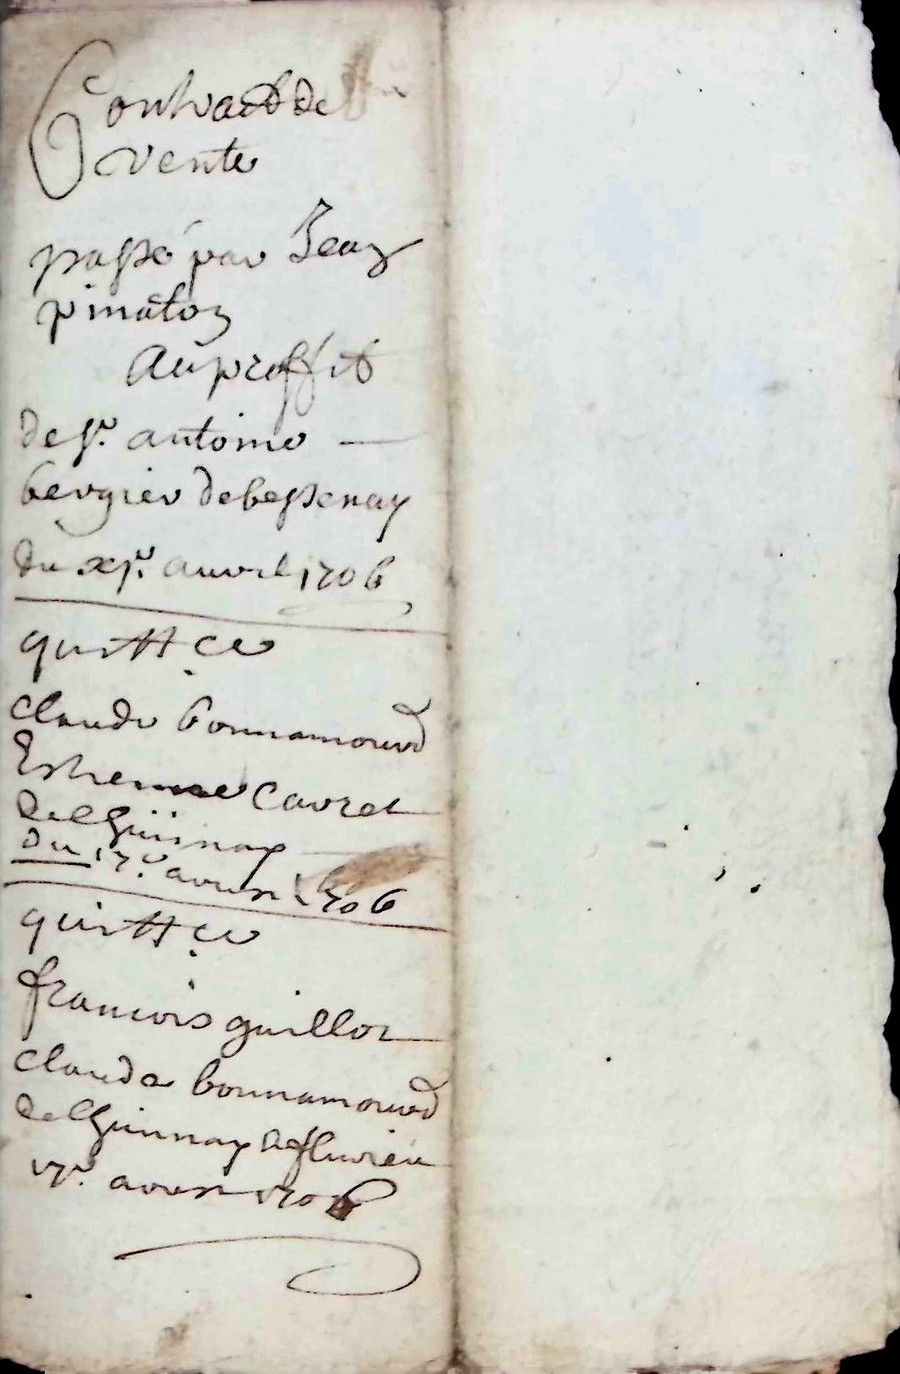 Contract de
vente
passé par Jean
pinaton
Au proffit
de sr. antoine
bergier de bessenay
du xje. auvril 1706
quittce
claude bonnamourd
Estienne Cavret
du 17e. avril 1706
quittce
francois guillot
claude bonnamourd
avril 1706